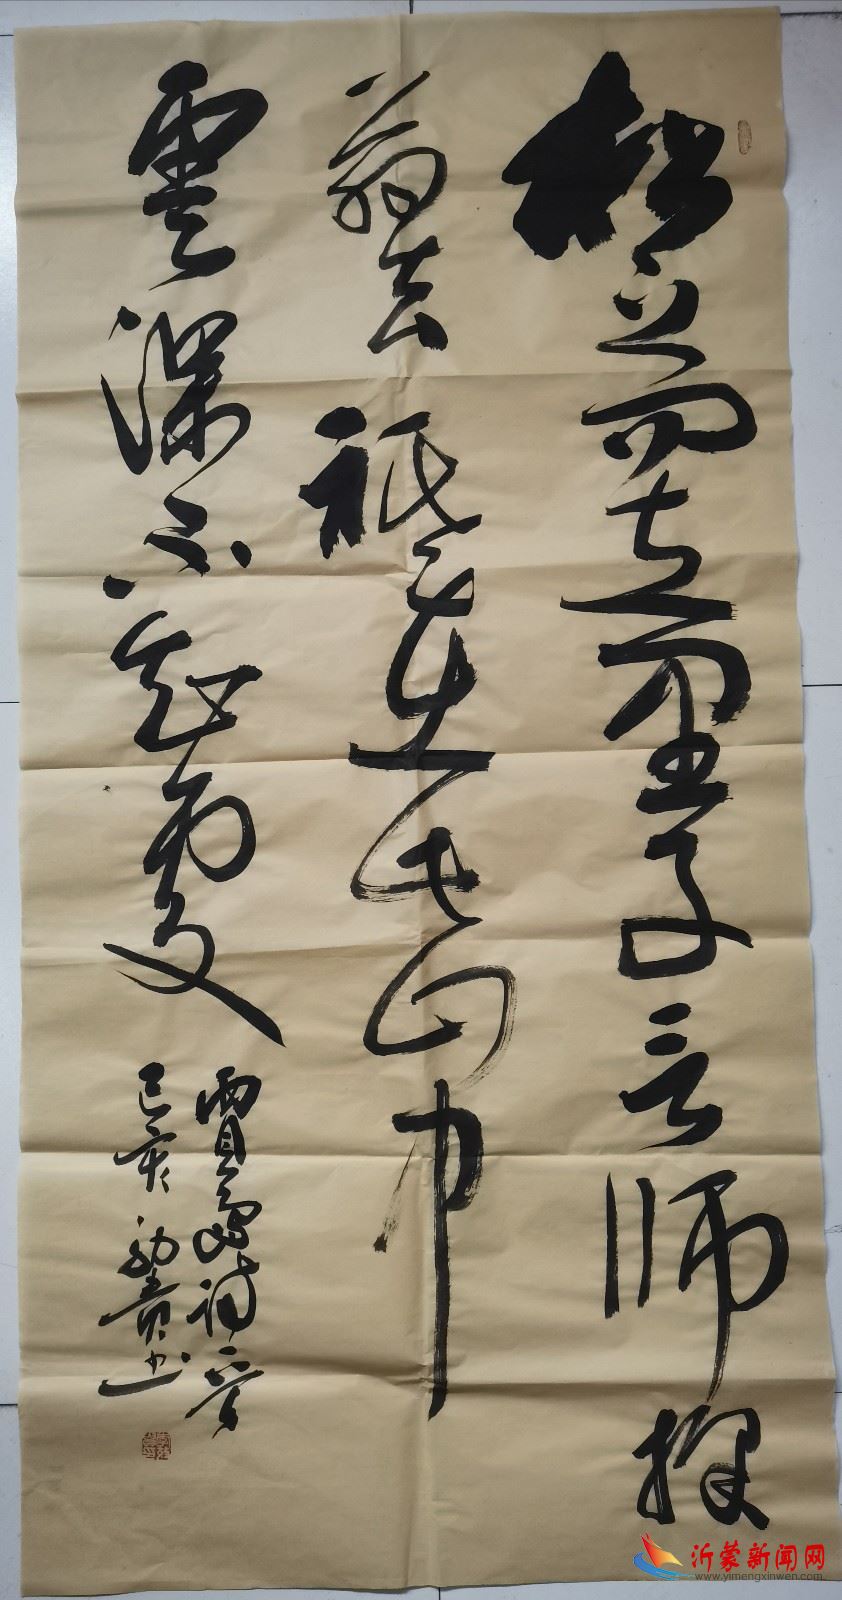 松下问童子言师採
药去祇在此山中
雲深不知處
賈島诗一首
己亥 勛贵书
沂蒙新闻网
www.yimengxinwen.com